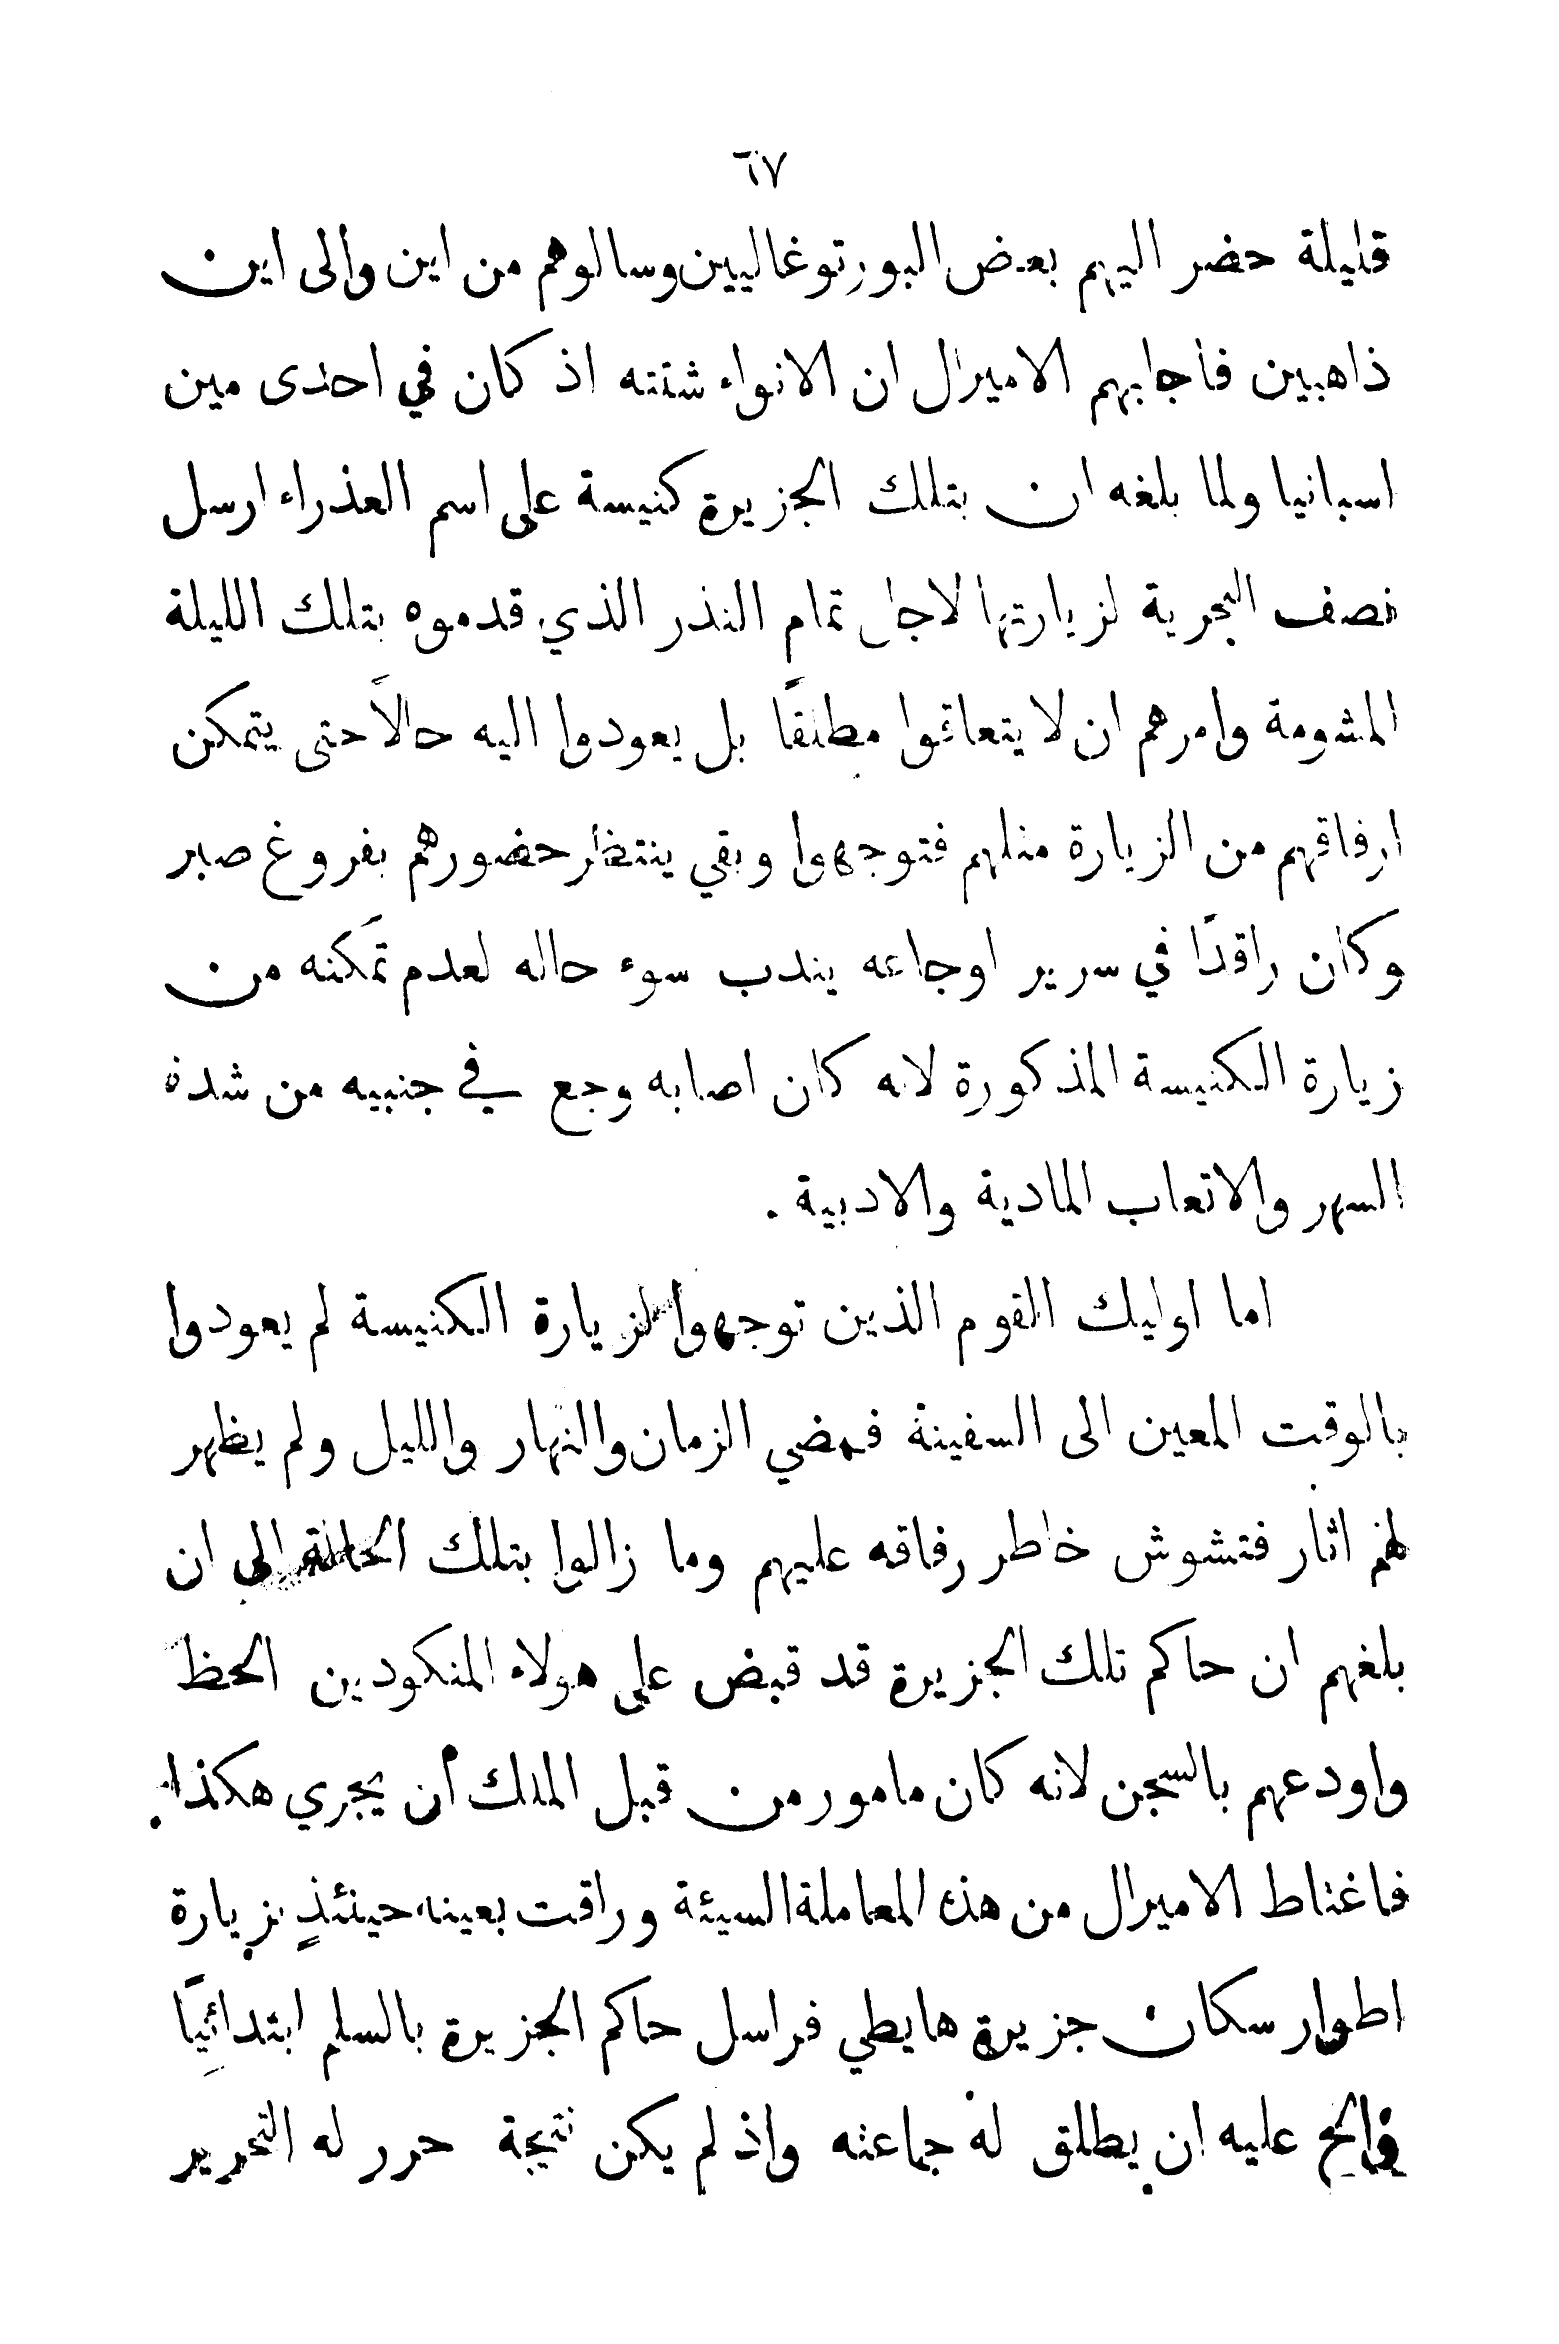 ٦٧
قليلة حضر اليهم بعض البورتوغاليين وسالوهم من اين والى اين
ذاهبين فأجابهم الاميرال ان الانواء شتته اذ كان في احدى مين
اسبانيا ولما بلغه ان بتلك الجزيرة كنيسة على اسم العذراء ارسل
نصف البحرية لزيارتها لاجل تمام النذر الذي قدموه بتلك الليلة
المشومة وامرهم ان لا يتعاقوا مطلقًا بل يعودوا اليه حالاً حتى يتمكن
ارفاقهم من الزيارة مثلهم فتوجهوا وبقي ينتظر حضورهم بفروغ صبر
وكان راقدًا في سرير اوجاعه يندب سوء حاله لعدم تمَكنه من
زيارة الكنيسة المذكورة لانه كان اصابه وجع في جنبيه من شدة
السهر والاتعاب المادية والادبية .
اما اوليك القوم الذين توجهوا لزيارة الكنيسة لم يعودوا
بالوقت المعين الى السفينة فمضي الزمان والنهار والليل ولم يظهر
لهم اثار فتشوش خاطر رفاقه عليهم وما زالوا بتلك الحالة الى ان
بلغهم ان حاكم تلك الجزيرة قد قبض على هولاء المنكودين الحظ
واودعهم بالسجن لانه كان مامور من قبل الملك أن يجري هكذا.
فاغتاط الاميرال من هذه المعاملة السيئة وراقت بعينه حينئذٍ بزيارة
اطوار سكان جزيرة هايطي فراسل حاكم الجزيرة بالسلم ابتدائيًا
والح عليه ان يطلق له جماعته واذ لم يكن نتيجة حرر له التحرير